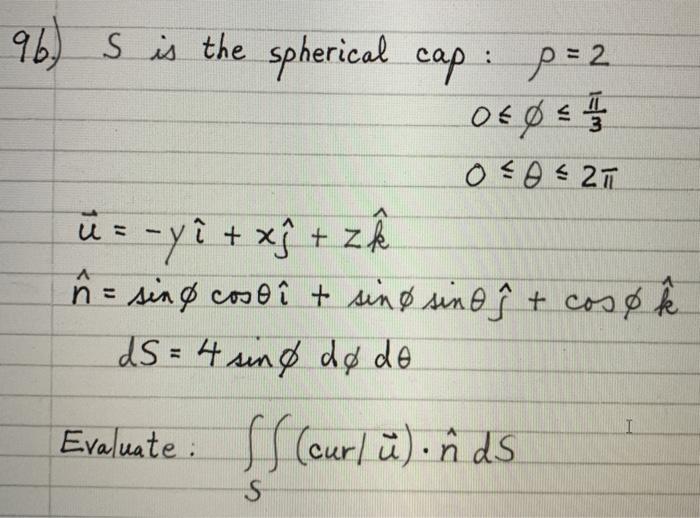 9b.) S is the spherical cap : ρ = 2
0 ≤ ϕ ≤ π/3
0 ≤ θ ≤ 2π
u⃗ = -y î + x ĵ + z k̂
n̂ = sinϕ cosθ î + sinϕ sinθ ĵ + cosϕ k̂
dS = 4 sinϕ dϕ dθ
Evaluate : ∬_S (curl u⃗) · n̂ dS